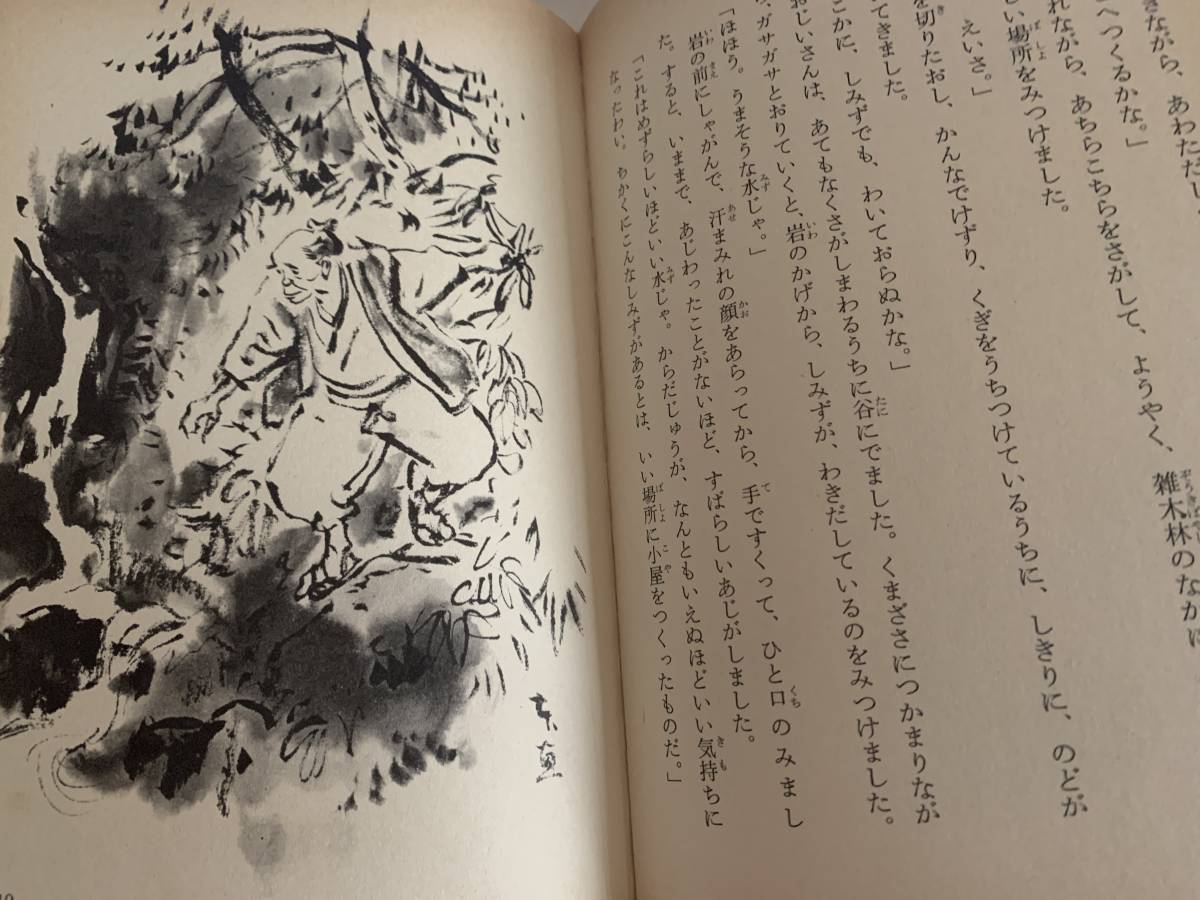 きながら、あわただし
へつくるかな。」
れながら、あちらこちらをさがして、ようやく、雑木林のなかに
しい場所をみつけました。
えいさ。」
を切りたおし、かんなでけずり、くぎをうちつけているうちに、しきりに、のどが
てきました。
こかに、しみずでも、わいておらぬかな。」
おじいさんは、あてもなくさがしまわるうちに谷にでました。くまざさにつかまりなが
、ガサガサとおりていくと、岩のかげから、しみずが、わきだしているのをみつけました。
「ほほう。うまそうな水じゃ。」
岩の前にしゃがんで、汗まみれの顔をあらってから、手ですくって、ひと口のみまし
た。すると、いままで、あじわったことがないほど、すばらしいあじがしました。
「これはめずらしいほどいい水じゃ。からだじゅうが、なんともいえぬほどいい気持ちに
なったわい。ちかくにこんなしみずがあるとは、いい場所に小屋をつくったものだ。」